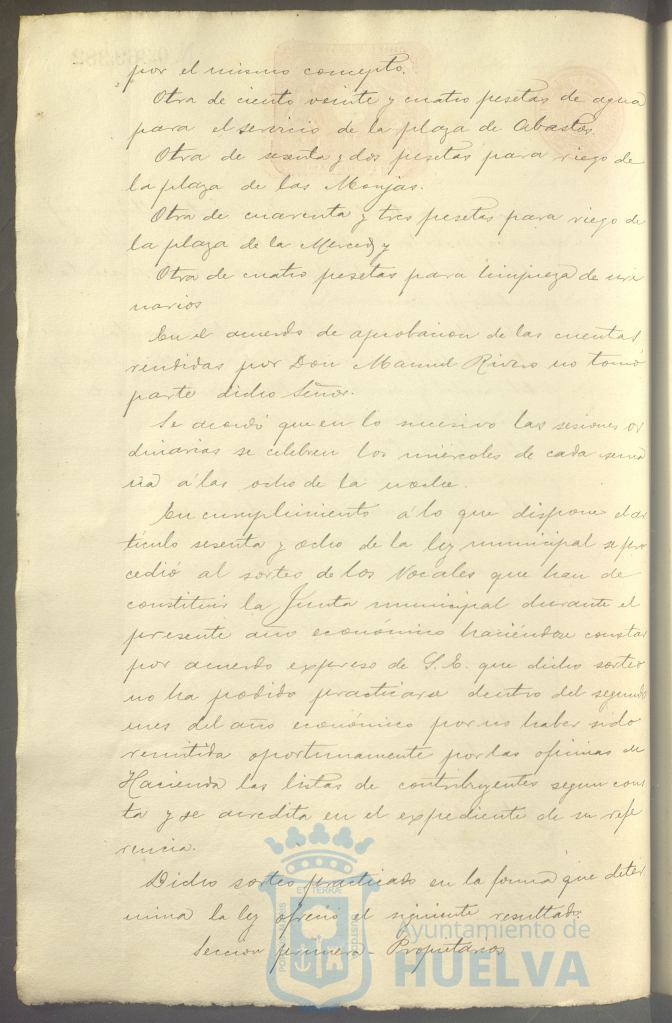 por el mismo concepto.
Otra de ciento veinte y cuatro pesetas de agua
para el servicio de la plaza de Abastos.
Otra de sesenta y dos pesetas para riego de
la plaza de las Monjas.
Otra de cuarenta y tres pesetas para riego de
la plaza de la Merced y
Otra de cuatro pesetas para limpieza de uri
narios
En el acuerdo de aprobacion de las cuentas
rendidas por Don Manuel Rivero no tomó
parte dicho Señor.
Se acordó que en lo sucesivo las sesiones or
dinarias se celebren los miércoles de cada sema
na á las ocho de la noche.
En cumplimiento á lo que dispone el ar
tículo sesenta y ocho de la ley municipal se pro
cedió al sorteo de los Vocales que han de
constituir la Junta municipal durante el
presente año económico haciéndose constar
por acuerdo expreso de S. E. que dicho sorteo
no ha podido practicarse dentro del segundo
mes del año económico por no haber sido
remitida oportunamente por las oficinas de
Hacienda las listas de contribuyentes segun cons
ta y se acredita en el expediente de su refe
rencia.
Dicho sorteo practicado en la forma que deter
mina la ley ofreció el siguiente resultado.
Seccion primera - Propietarios
Ayuntamiento de
HUELVA